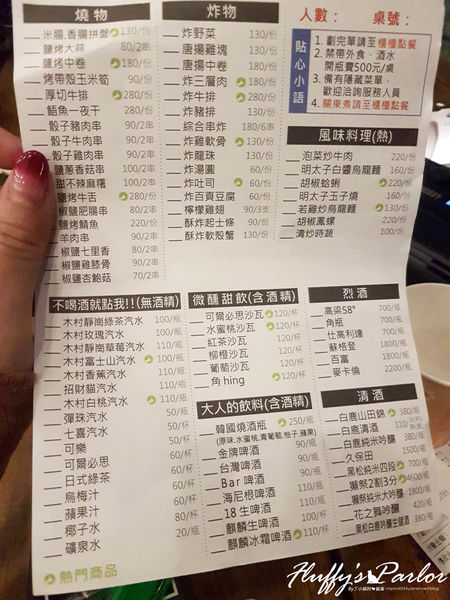 燒物
米腸.香腸拼盤 130/份
鹽烤大蒜 80/2串
鹽烤中卷 180/份
烤帶殼玉米筍 90/份
厚切牛排 280/份
鯖魚一夜干 280/份
骰子豬肉串 90/2串
骰子牛肉串 90/2串
骰子雞肉串 90/2串
鹽蔥香菇串 100/2串
甜不辣麻糬 100/2串
鹽烤牛舌 280/份
椒鹽肥腸串 80/2串
鹽烤鯖魚 220/份
羊肉串 90/2串
椒鹽七里香 80/2串
椒鹽雞膝骨 90/2串
椒鹽杏鮑菇 70/2串
炸物
炸野菜 130/份
唐揚雞塊 130/份
唐揚中卷 180/份
炸三層肉 180/份
炸牛排 280/份
炸豬排 130/份
綜合串炸 180/6串
炸雞軟骨 130/份
炸龍珠 130/份
炸湯圓 60/份
炸吐司 60/份
炸百頁豆腐 60/份
檸檬雞翅 90/3支
酥炸起士條 90/份
酥炸軟殼蟹 130/份
人數： 桌號：
貼心小語
1. 劃完單請至櫃檯點餐
2. 禁帶外食、酒水
開瓶費500元/桌
3. 備有隱藏菜單，
歡迎洽詢服務人員
4. 關東煮請至櫃檯點餐
風味料理(熱)
泡菜炒牛肉 220/份
明太子白醬烏龍麵 160/份
胡椒蛤蜊 220/份
明太子玉子燒 160/份
若雞炒烏龍麵 130/份
胡椒鳳螺 220/份
清炒時蔬 100/份
不喝酒就點我!!(無酒精)
木村靜崗綠茶汽水 100/瓶
木村玫瑰汽水 100/瓶
木村靜崗草莓汽水 110/瓶
木村富士山汽水 100/瓶
木村蕉蕉汽水 110/瓶
招財貓汽水 110/瓶
木村白桃汽水 110/瓶
彈珠汽水 50/杯
七喜汽水 50/杯
可樂 50/杯
可爾必思 60/杯
日式綠茶 60/杯
烏梅汁 60/杯
蘋果汁 60/杯
椰子水 80/杯
礦泉水 20/瓶
微醺甜飲(含酒精)
可爾必思沙瓦 120/杯
水蜜桃沙瓦 120/杯
紅茶沙瓦 120/杯
柳橙沙瓦 120/杯
葡萄沙瓦 120/杯
角 hing 120/杯
大人的飲料(含酒精)
韓國燒酒瓶 250/瓶
(原味.水蜜桃.青葡萄.柚子.蘋果)
金牌啤酒 90/瓶
台灣啤酒 90/瓶
Bar 啤酒 110/瓶
海尼根啤酒 110/瓶
18生啤酒 110/瓶
麒麟生啤酒 110/杯
麒麟冰霜啤酒 110/杯
烈酒
高梁58° 700/瓶
角瓶 1200/瓶
仕高利達 700/瓶
蘇格登 1200/瓶
百富 1800/瓶
麥卡倫 2200/瓶
清酒
白鹿山田錦 380/瓶
白鹿清酒 110/瓶
白鹿純米吟釀 380/瓶
久保田
黑松純米四段 700/瓶
獺祭2割3分 4600/瓶
獺祭純米大吟釀 1800/瓶
花之舞吟釀
黑松白鹿吟釀生貯酒 380/瓶
熱門商品
Fluffy's Parlor